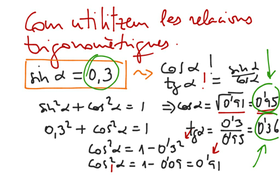 Com utilitzem les relacions
trigonomètriques.
sin α = 0,3 → cos α !
tg α ! = sin α / cos α
sin²α + cos²α = 1 ⇒ cos α = √0'91 = 0'95
0,3² + cos²α = 1 tg α = 0'3 / 0'95 = 0'36
cos²α = 1 - 0'3²
cos²α = 1 - 0'09 = 0'91